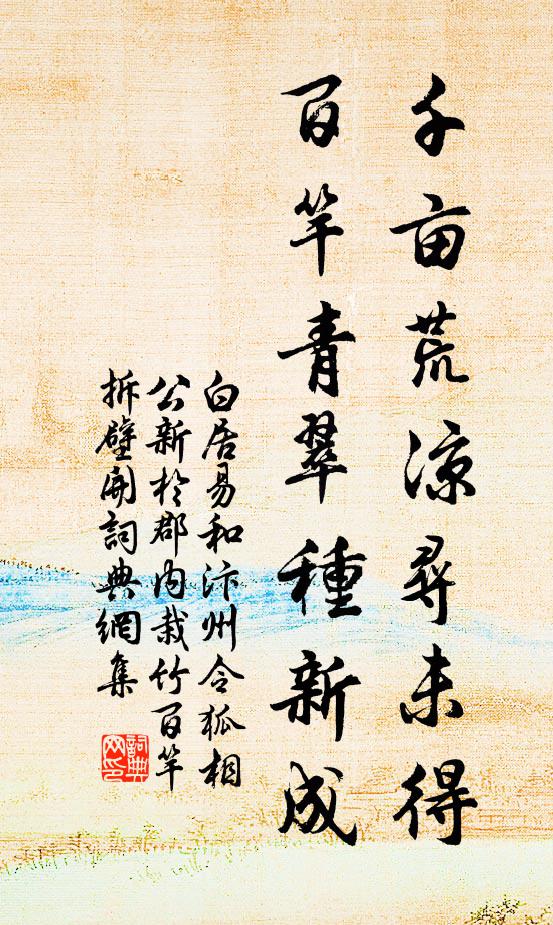 千亩荒凉尋未得
百竿青翠種新成
白居易和汴州令狐相
公新於郡内栽竹百竿
拆壁開詞典網集
詞典
网印